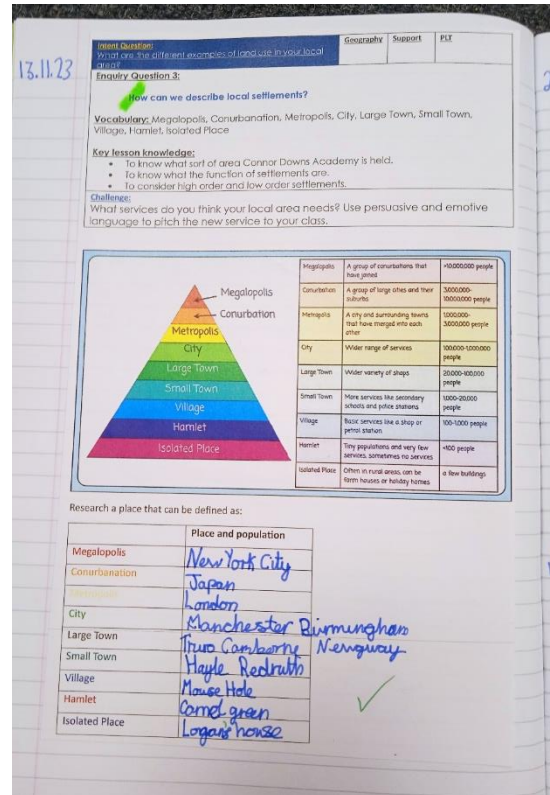 13.11.23
Intent Question:
What are the different examples of land use in your local
area?
Geography
Support
PLT
Enquiry Question 3:
How can we describe local settlements?
Vocabulary: Megalopolis, Conurbanation, Metropolis, City, Large Town, Small Town,
Village, Hamlet, Isolated Place
Key lesson knowledge:
• To know what sort of area Connor Downs Academy is held.
• To know what the function of settlements are.
• To consider high order and low order settlements.
Challenge:
What services do you think your local area needs? Use persuasive and emotive
language to pitch the new service to your class.
Megalopolis
Conurbation
Metropolis
City
Large Town
Small Town
Village
Hamlet
Isolated Place
Megalopolis
A group of conurbations that
have joined
+10,000,000 people
Conurbation
A group of large cities and their
suburbs
3,000,000-
10,000,000 people
Metropolis
A city and surrounding towns
that have merged into each
other
1,000,000-
3,000,000 people
City
Wider range of services
100,000-1,000,000
people
Large Town
Wider variety of shops
20,000-100,000
people
Small Town
More services like secondary
schools and police stations
1,000-20,000
people
Village
Basic services like a shop or
petrol station
100-1,000 people
Hamlet
Tiny populations and very few
services, sometimes no services
<100 people
Isolated Place
Often in rural areas, can be
farm houses or holiday homes
a few buildings
Research a place that can be defined as:
Place and population
Megalopolis
New York City
Conurbanation
Japan
Metropolis
London
City
Manchester Birmingham
Large Town
Truro Camborne Newquay
Small Town
Hayle Redruth
Village
Mouse Hole
Hamlet
Carnel green
Isolated Place
Logan's house